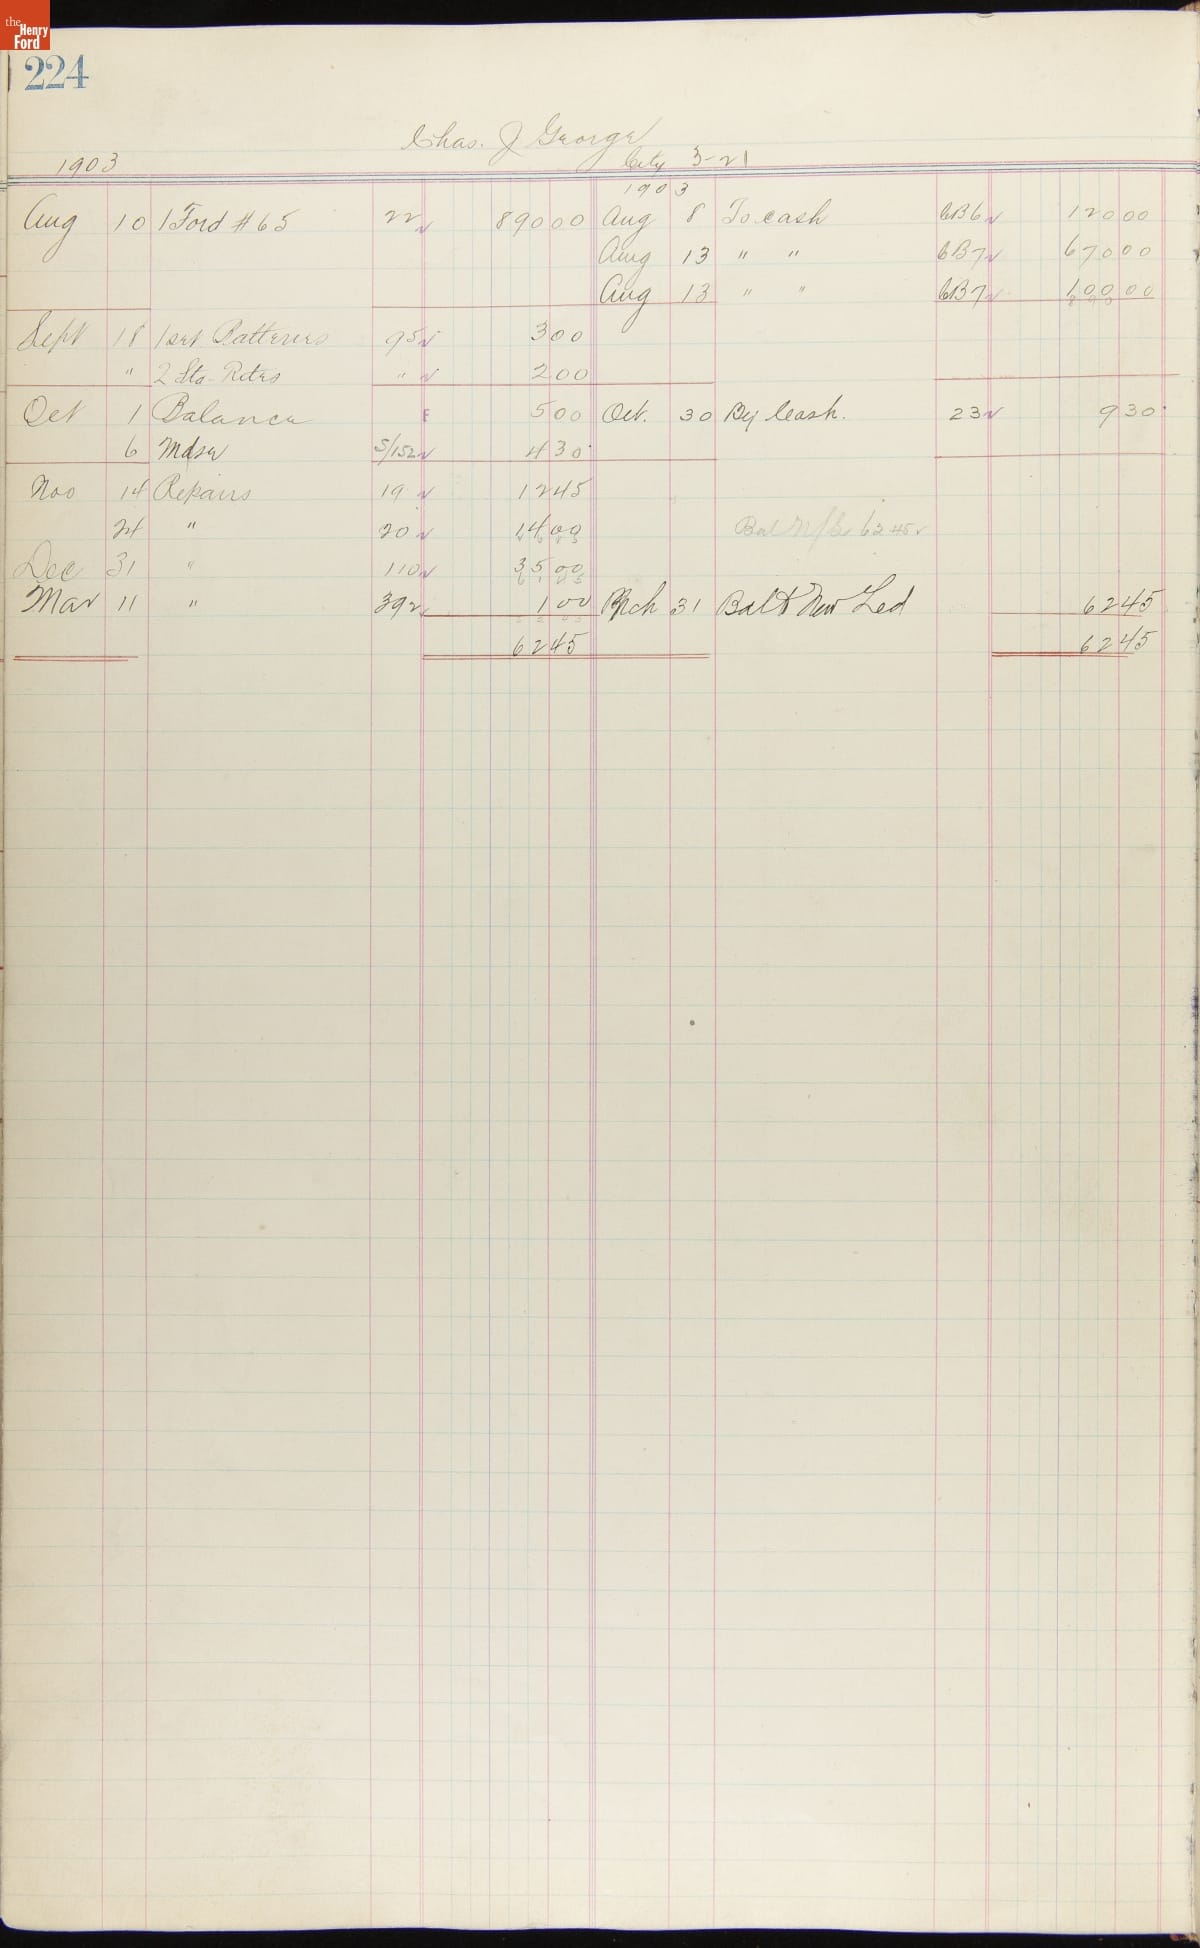 the Henry Ford
224
Chas. J George
1903 City 3-21
1903
Aug 10 1 Ford # 65 22 890 00 Aug 8 To cash CB6 120 00
Aug 13 " " CB7 670 00
Aug 13 " " CB7 100 00
Sept 18 1 set Batteries 95 3 00
" 2 Sta-Rites " 2 00
Oct 1 Balance 5 00 Oct. 30 By Cash. 23 9 30
6 Mdse S/152 4 30
Nov 14 Repairs 19 12 45
24 " 20 14 00 Bal 62 45
Dec 31 " 110 35 00
Mar 11 " 392 1 00 Mch 31 Bal to New Led 62 45
62 45 62 45